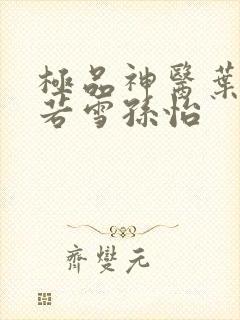 極品神醫葉
若雪孫怡
齊燮元